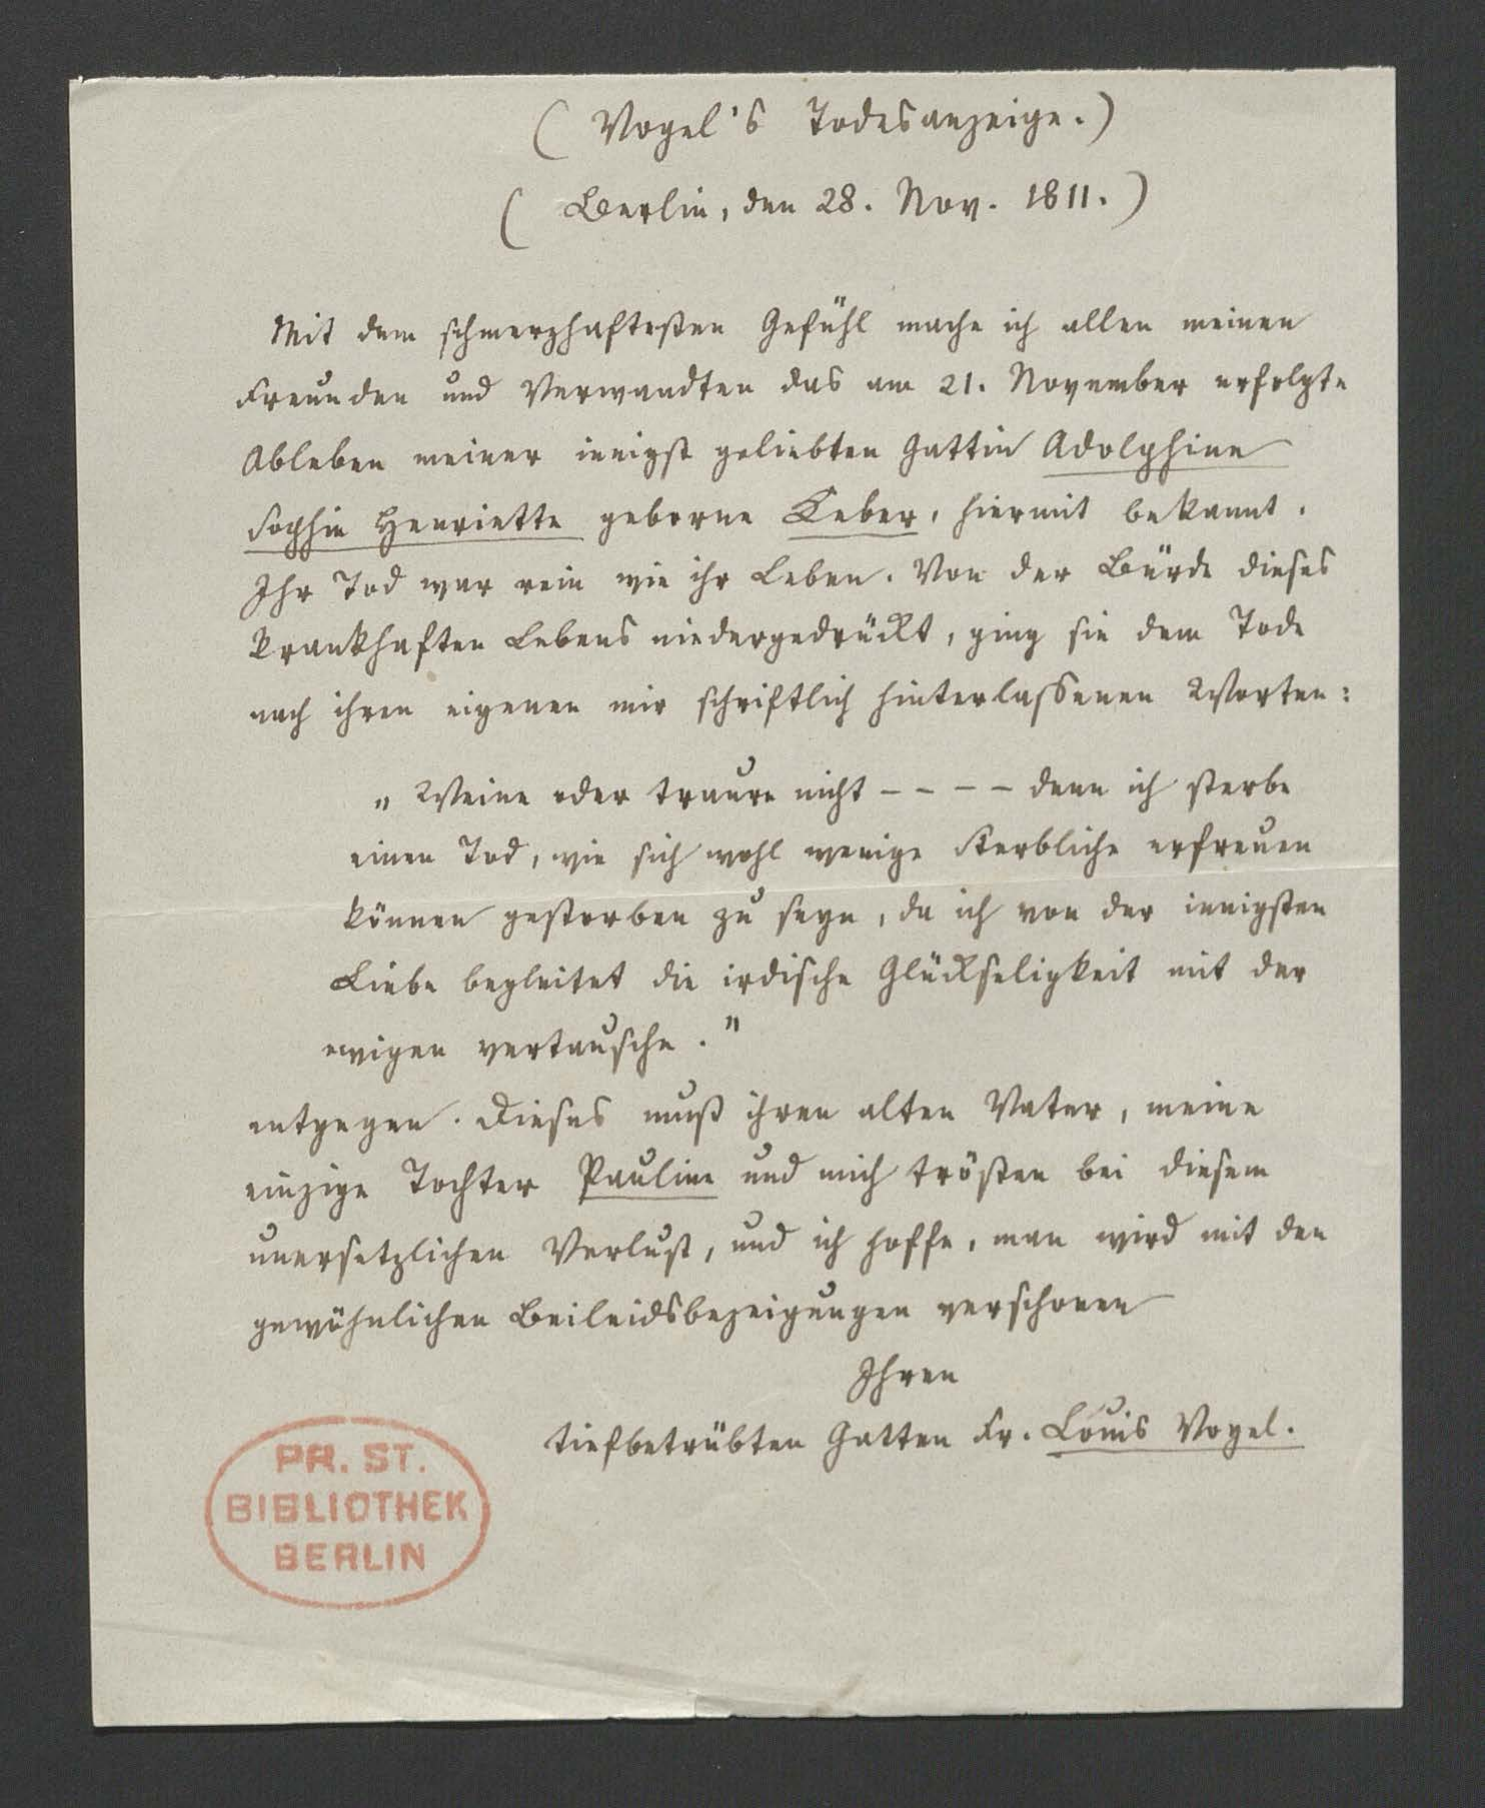 (Vogel's Todesanzeige.)
(Berlin, den 28. Nov. 1811.)
Mit dem schmerzhaftesten Gefühl mache ich allen meinen
Freunden und Verwandten das am 21. November erfolgte
Ableben meiner innigst geliebten Gattin Adolphine
Sophie Henriette geborne Keber, hiermit bekannt.
Ihr Tod war rein wie ihr Leben. Von der Bürde dieses
krankhaften Lebens niedergedrückt, ging sie dem Tode
nach ihren eigenen mir schriftlich hinterlassenen Worten:
„Weine oder traure nicht – – – – denn ich sterbe
einen Tod, wie sich wohl wenige Sterbliche erfreuen
können gestorben zu seyn, da ich von der innigsten
Liebe begleitet die irdische Glückseligkeit mit der
ewigen vertausche."
entgegen. Dieses muß ihren alten Vater, meine
einzige Tochter Pauline und mich trösten bei diesem
unersetzlichen Verlust, und ich hoffe, man wird mit den
gewöhnlichen Beileidsbezeigungen verschonen
Ihren
tiefbetrübten Gatten Fr. Louis Vogel.
PR. ST.
BIBLIOTHEK
BERLIN